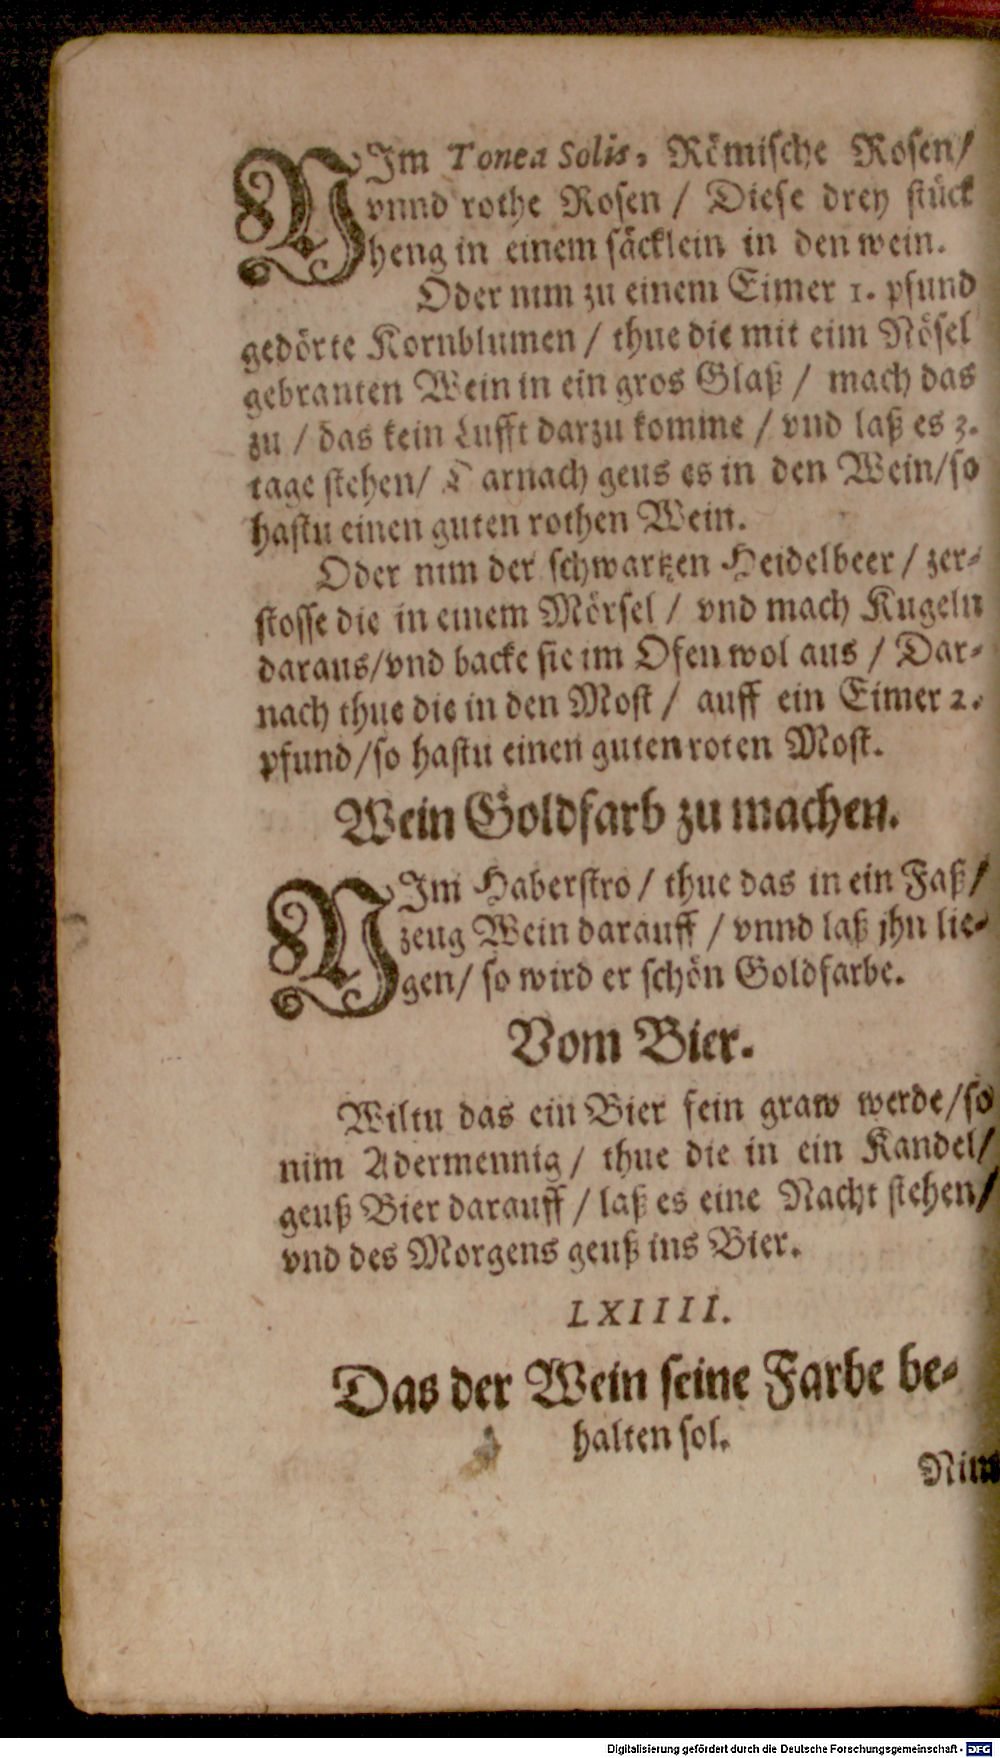 NIm Tonea Solis, Römische Rosen/
vnnd rothe Rosen / Diese drey stück
heng in einem säcklein in den wein.
Oder nim zu einem Eimer 1. pfund
gedörte Kornblumen / thue die mit eim Nösel
gebranten Wein in ein gros Glaß / mach das
zu / das kein Lufft darzu komme / vnd laß es 3.
tage stehen/ Darnach geus es in den Wein/so
hastu einen guten rothen Wein.
Oder nim der schwartzen Heidelbeer / zer-
stosse die in einem Mörsel / vnd mach Kugeln
daraus/vnd backe sie im Ofen wol aus / Dar-
nach thue die in den Most / auff ein Eimer 2.
pfund/so hastu einen guten roten Most.
Wein Goldfarb zu machen.
NIm Haberstro / thue das in ein Faß/
zeug Wein darauff / vnnd laß jhn lie-
gen/ so wird er schön Goldfarbe.
Vom Bier.
Wiltu das ein Bier fein graw werde/so
nim Adermennig / thue die in ein Kandel/
geuß Bier darauff / laß es eine Nacht stehen/
vnd des Morgens geuß ins Bier.
LXIIII.
Das der Wein seine Farbe be-
halten sol.
Nim
Digitalisierung gefördert durch die Deutsche Forschungsgemeinschaft - DFG